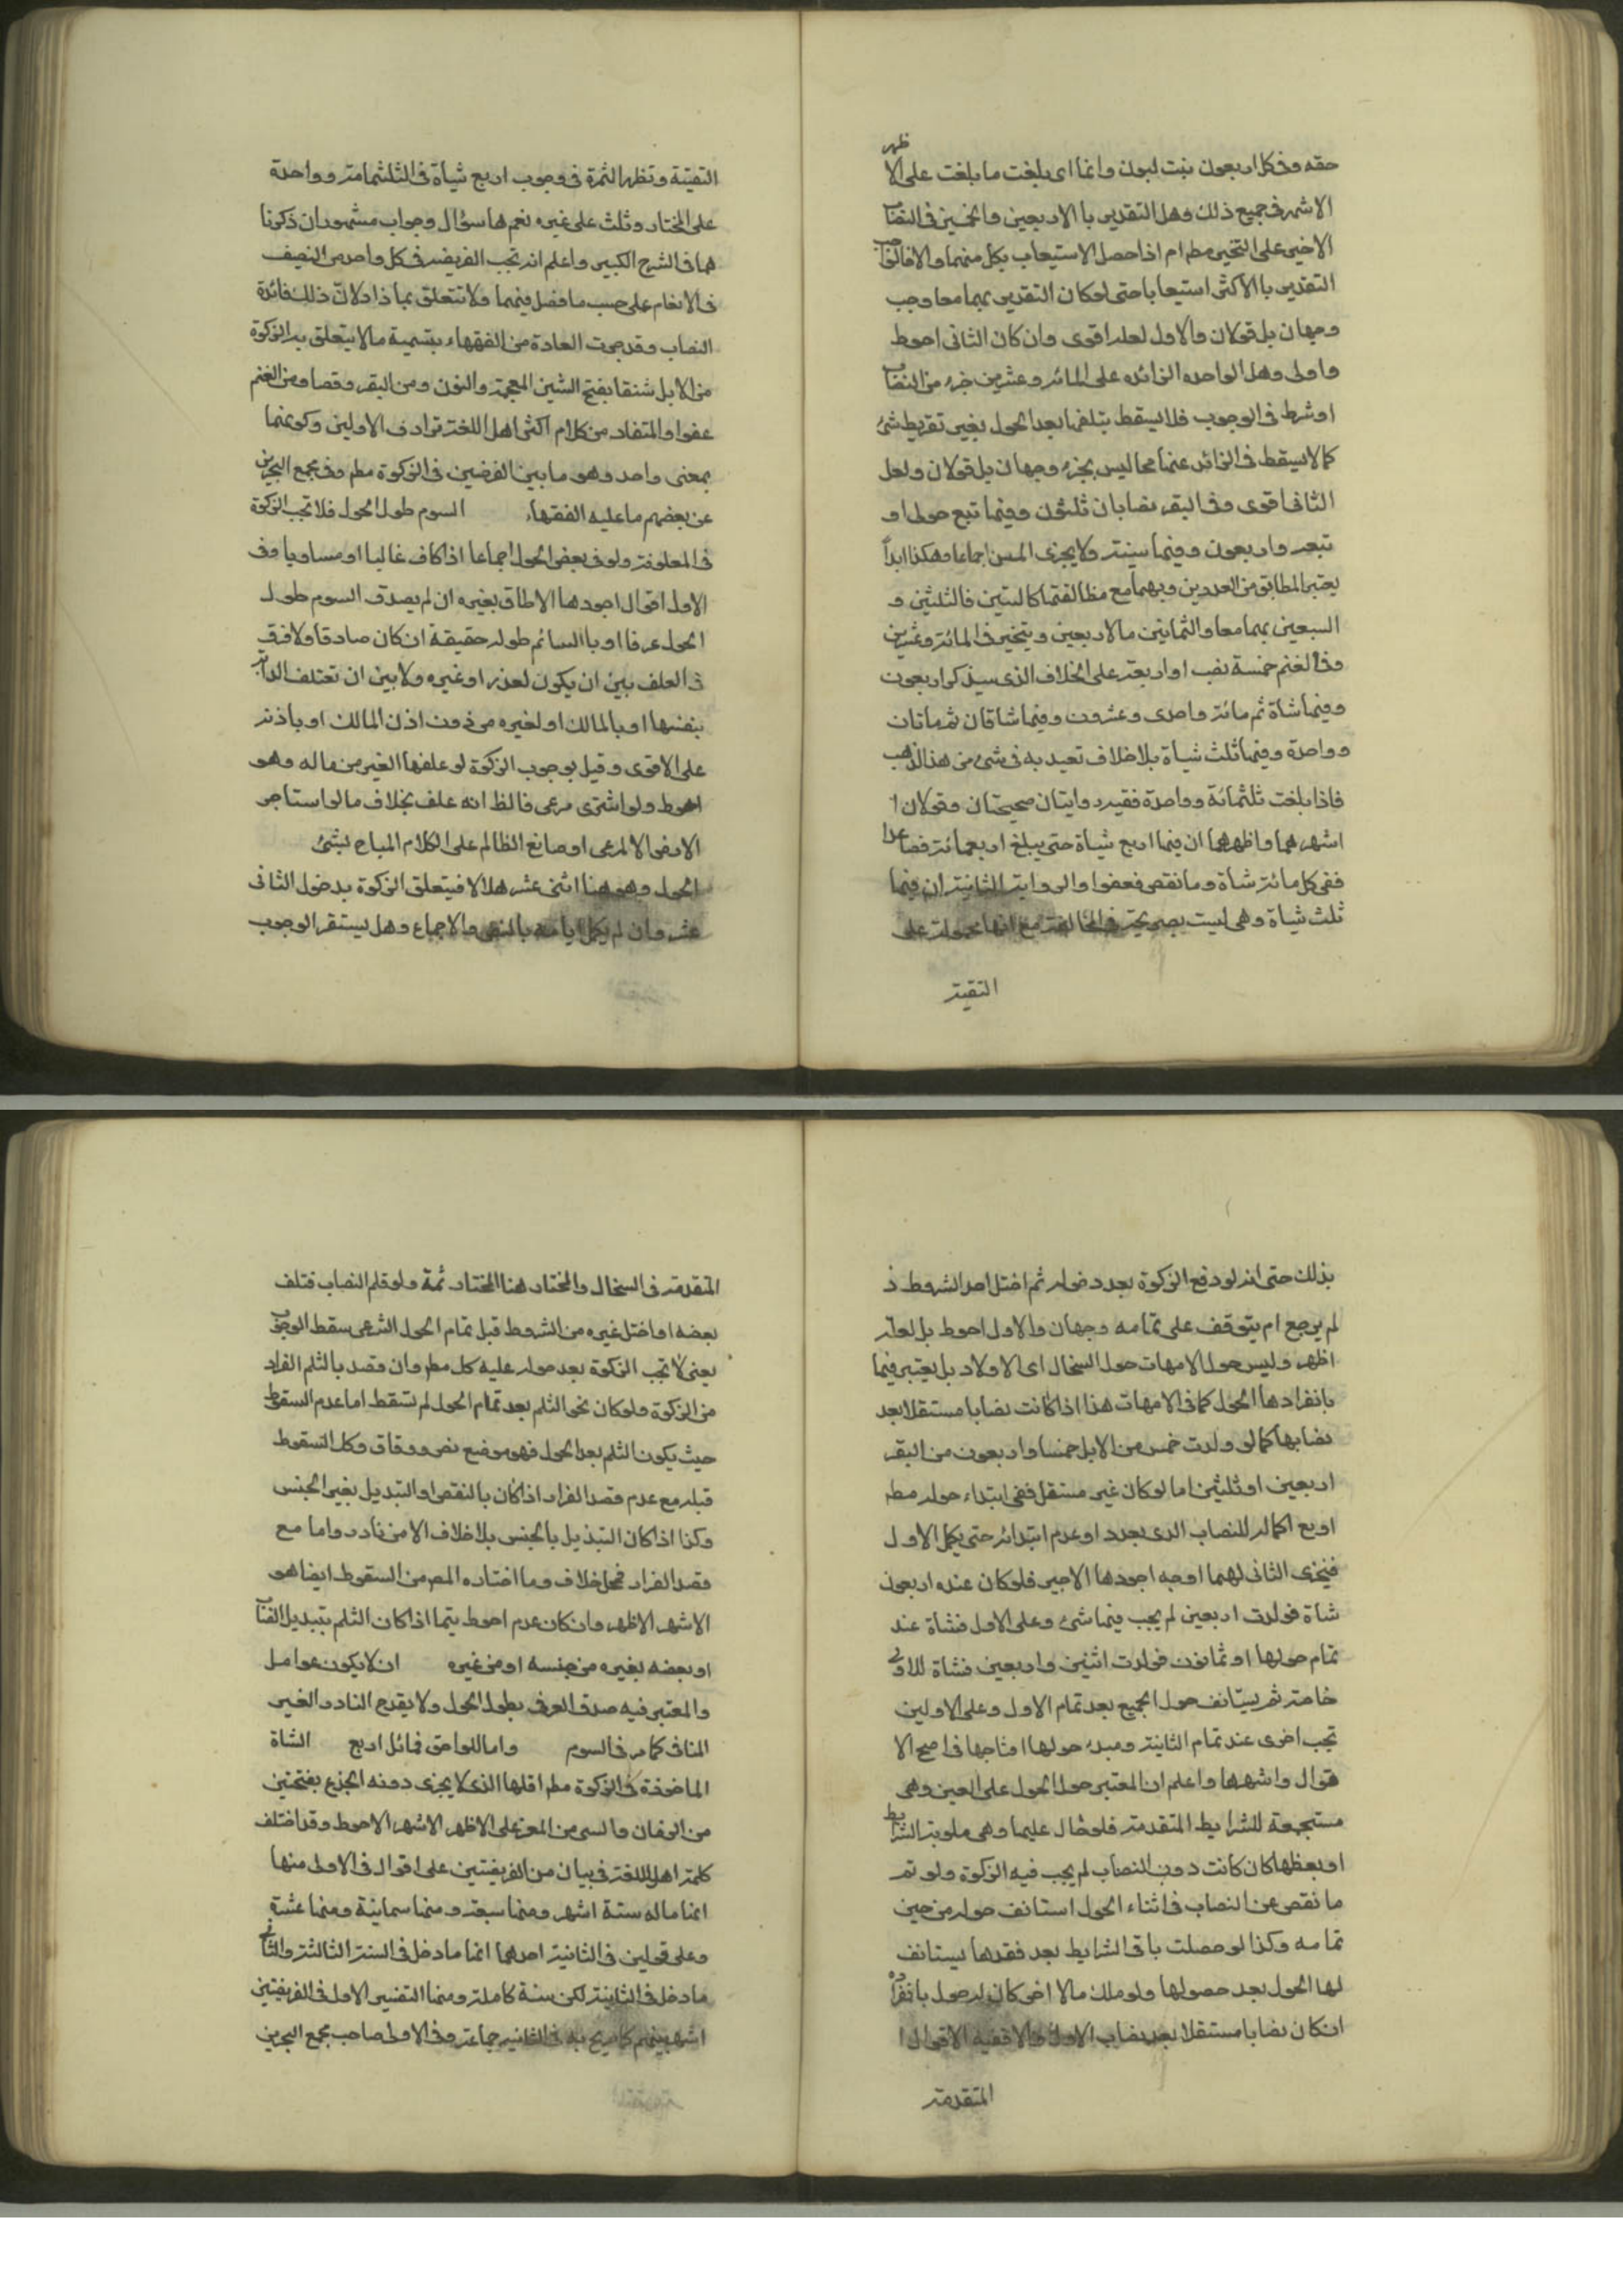 حقه وفی کل اربعون بنت لبون وانما ای بلغت ما بلغت علی الا
ظهر
الاشهر فی جمیع ذلک وهل التقدیر با الاربعین والخمسین فی النصاب
الاخیر علی التخییر مطم ام اذا حصل الاستیعاب بکل منهما والا فالتوا
التقدیر با الاکثر استیعابا حتی لو کان التقدیر بهما معا وجب
وجهان بل قولان والاول لعله اقوی وان کان الثانی احوط
واولی وهل الواحده الزائده علی المائه وعشرین جزء من النصاب
او شرط فی الوجوب فلا یسقط بتلفها بعد الحول بغیر تفریط شئ
کما لا یسقط فی الزائد عنها مما لیس بجزء وجهان بل قولان ولعل
الثانی اقوی وفی البقر نصابان ثلثون وفیها تبیع حولی او
تبعه واربعون وفیها مسنة ولا یجزی المسن اجماعا وهکذا ابداً
یعتبر المطابق من العددین وبهما مع مطابقتها کالستین فالثلثین و
السبعین بهما معا والثمانین بالاربعین ویتخیر فی المائة وعشرین
وفی الغنم خمسة نصب او اربعة علی الخلاف الذی سیذکر اربعون
وفیها شاة ثم مائة واحدی وعشرون وفیها شاتان ثم مأتان
وواحدة وفیها ثلث شیاة بلا خلاف تعید به فی شئ من هذا الذهب
فاذا بلغت ثلثمائة وواحدة فقیه روایتان صحیحتان وقولان ا
اشهرهما واظهرهما ان فیها اربع شیاة حتی یبلغ اربعمائة فصاعدا
ففی کل مائة شاة وما نقص فعفوا والروایة الثانیة ان فیها
ثلث شیاة وهی لیست بصریحة فی المخالفة مع انها محمولة علی
التقیة
التقیة وتظهر الثمرة فی وجوب اربع شیاة فی الثلثمائة وواحدة
علی المختار وثلث علی غیره نعم ها سؤال وجواب مشهوران ذکرنا
هما فی الشرح الکبیر واعلم انه تجب الفریضه فی کل واحد من النصیف
فی الانعام علی حسب ما فصل فیهما ولا تتعلق بما زاد لان ذلک فائدة
النصاب وقد جرت العادة من الفقهاء بتسمیة ما لا یتعلق به الزکوة
من الابل شنقا بفتح الشین المعجمة والنون ومن البقر وقصا ومن الغنم
عفوا والمتفاد من کلام اکثر اهل اللغة ترادف الاولین وکونهما
بمعنی واحد وهو ما بین الفرضین فی الزکوة مطم وفی مجمع البحرین
عن بعضهم ما علیه الفقهاء السوم طول الحول فلا تجب الزکوة
فی المعلوفة ولو فی بعض الحول اجماعا اذا کان غالبا او مساویا وفی
الاول اقوال اجودها الاطلاق بغیره ان لم یصدق السوم طول
الحول عرفا او با السائم طوله حقیقة ان کان صادقا ولا فرق
فی العلف بین ان یکون لعذر او غیره ولا بین ان تعتلف الدابة
بنفسها او بالمالک او لغیره من دون اذن المالک او باذنه
علی الاقوی وقیل بوجوب الزکوة لو علفها الغیر من ماله وهو
احوط ولو اشتری مرعی فالظ انه علف بخلاف ما لو استاجر
الارض الالمرعی او صانع الظالم علی الکلام المباح بشئ
الحول وهو هنا اثنی عشر هلالا فیتعلق الزکوة بدخول الثانی
عشر وان لم یکمل ایامه بالنص والاجماع وهل یستقر الوجوب
بذلک حتی انه لو دفع الزکوة بعد دخوله ثم اختل احد الشروط ذ
لم یرجع ام یتوقف علی تمامه وجهان والاول احوط بل لعله
اظهر ولیس حول الامهات حول السخال ای الاولاد بل یعتبر فیها
بانفرادها الحول کما فی الامهات هذا اذا کانت نصابا مستقلا بعد
نصابها کما لو ولدت خمس من الابل خمسا واربعون من البقر
اربعین او ثلثین اما لو کان غیر مستقل ففی ابتداء حوله مطم
او مع اکماله للنصاب الذی بعده او عدم ابتدائه حتی یکمل الاول
فیجزی الثانی لهما اوجه اجودها الاخیر فلو کان عنده اربعون
شاة فولدت اربعین لم یجب فیها شئ وعلی الاول فشاة عند
تمام حولها او ثمانون فولدت اثنین واربعین فشاة للاولی
خاصة ثم یستانف حول الجمیع بعد تمام الاول وعلی الاولین
تجب اخری عند تمام الثانیة ومبدء حولها انتاجها فی اصح الا
قوال واشهرها واعلم ان المعتبر حول الحول علی العین وهی
مستجمعة للشرایط المتقدمة فلو حال علیها وهی مسلوبة الشرایط
او بعظها کان کانت دون النصاب لم یجب فیه الزکوة ولو تم
ما نقص عن النصاب فی اثناء الحول استانف حوله من حین
تمامه وکذا لو حصلت باقی الشرایط بعد فقدها یستانف
لها الحول بعد حصولها ولو ملک مالا اخر کان له حول بانفراده
ان کان نصابا مستقلا بعد نصاب الاول والا ففیه الاقوال ا
المتقدمة
المتقدمة فی السخال والمختار هنا المختار ثمة ولو قلم النصاب فتلف
بعضه او اختل غیره من الشروط قبل تمام الحول الشرعی سقط الوجوب
یعنی لا تجب الزکوة بعد حوله علیه کل مطم وان قصد بالثلم الفرار
من الزکوة ولو کان نحو الثلم بعد تمام الحول لم تسقط اما عدم السقوط
حیث یکون الثلم بعد الحول فهو موضع نص ووفاق وکل السقوط
قبله مع عدم قصد الفرار اذا کان بالنقص او التبدیل بغیر الجنس
وکذا اذا کان التبدیل بالجنس بلا خلاف الا من نادر واما مع
قصد الفرار فمحل خلاف وما اختاره المص من السقوط ایضا هو
الاشهر الاظهر وان کان عدم احوط سیما اذا کان الثلم بتبدیل النصاب
او بعضه بغیره من جنسه او من غیره ان لا یکون عوامل
والمعتبر فیه صدق العرف بطول الحول ولا یقدح النادر الغیر
المنافی کما مر فی السوم واما اللواحق فمائل اربع الشاة
الماخوذة فی الزکوة مطم اقلها الذی لا یجزی دونه الجذع بفتحتین
من الضان والثنی من المعز علی الاظهر الاشهر الاحوط وقد اختلف
کلمة اهل اللغة فی بیان من الفریضتین علی اقوال فی الاولی منها
انها ماله ستة اشهر ومنها سبعة ومنها ثمانیة ومنها عشرة
وعلی قولین فی الثانیة احدهما انها ما دخل فی السنة الثالثة والثانی
ما دخل فی الثانیة لکن سنة کاملة ومنها التفسیر الاول فی الفریضتین
اشهر بینهم کما صرح به فی الثانیه جماعة وفی الاولی صاحب مجمع البحرین